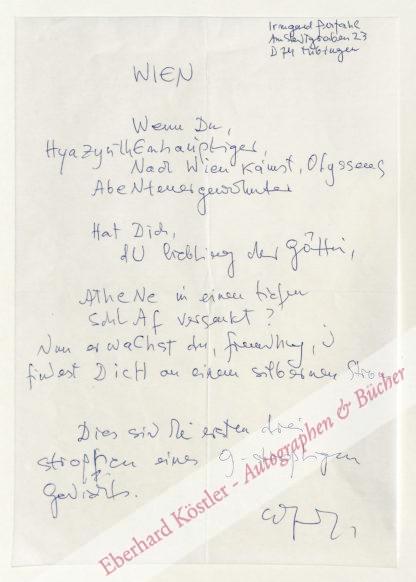 Irmgard Perfahl
D 74 Tübingen
WIEN
Wenn Du,
HyazynthEnhäuptiger,
Nach Wien kämst, Odysseus
AbeNteuergewöhnter
Hat Dich,
dU Liebling der Göttin,
AtheNe in einen tiefen
SchlAf versenkt?
Nun erwaChst du, fremdling,
findest DicH an einem silbernen Strom
Dies sind die ersten drei
strophen eines 9-strophigen
Gedichts.
Eberhard Köstler - Autographen & Bücher